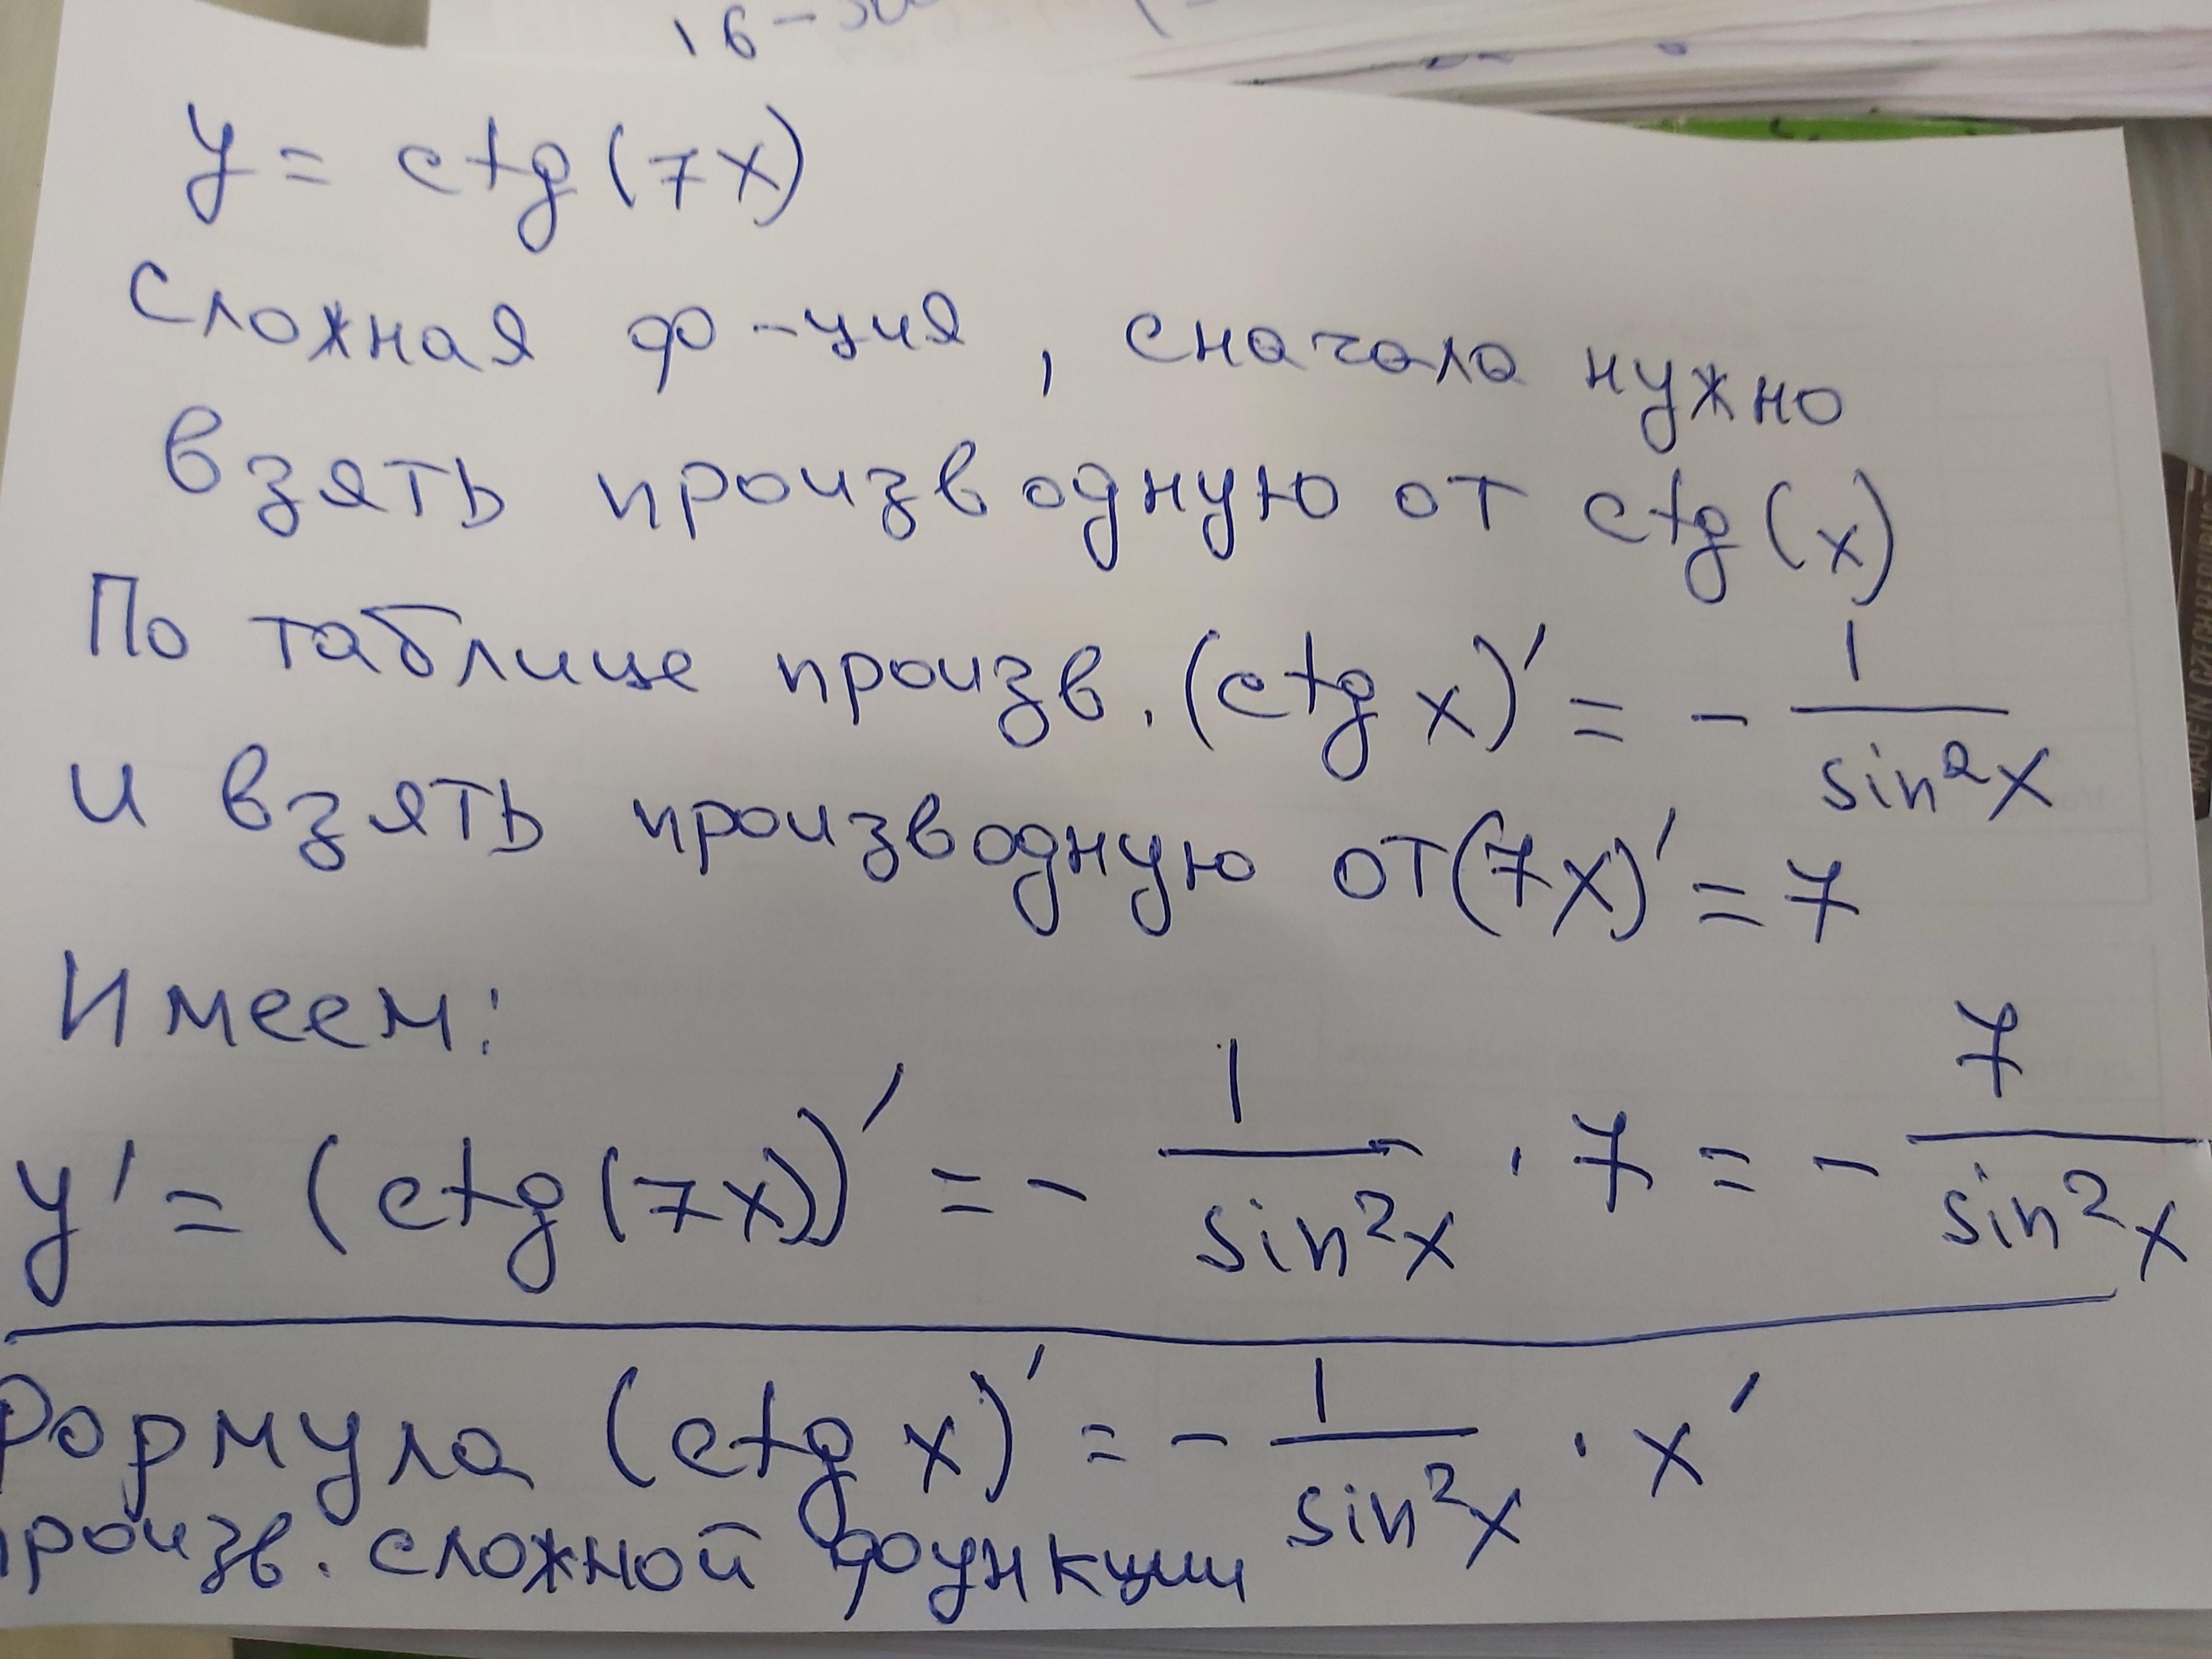 16-
y = ctg(7x)
Сложная ф-ция, сначала нужно
взять производную от ctg(x)
По таблице произв. (ctg x)' = - 1/sin²x
и взять производную от (7x)' = 7
Имеем:
y' = (ctg(7x))' = - 1/sin²x · 7 = - 7/sin²x
Формула (ctg x)' = - 1/sin²x · x'
произв. сложной функции
MADE IN CZECH REPUBLIC